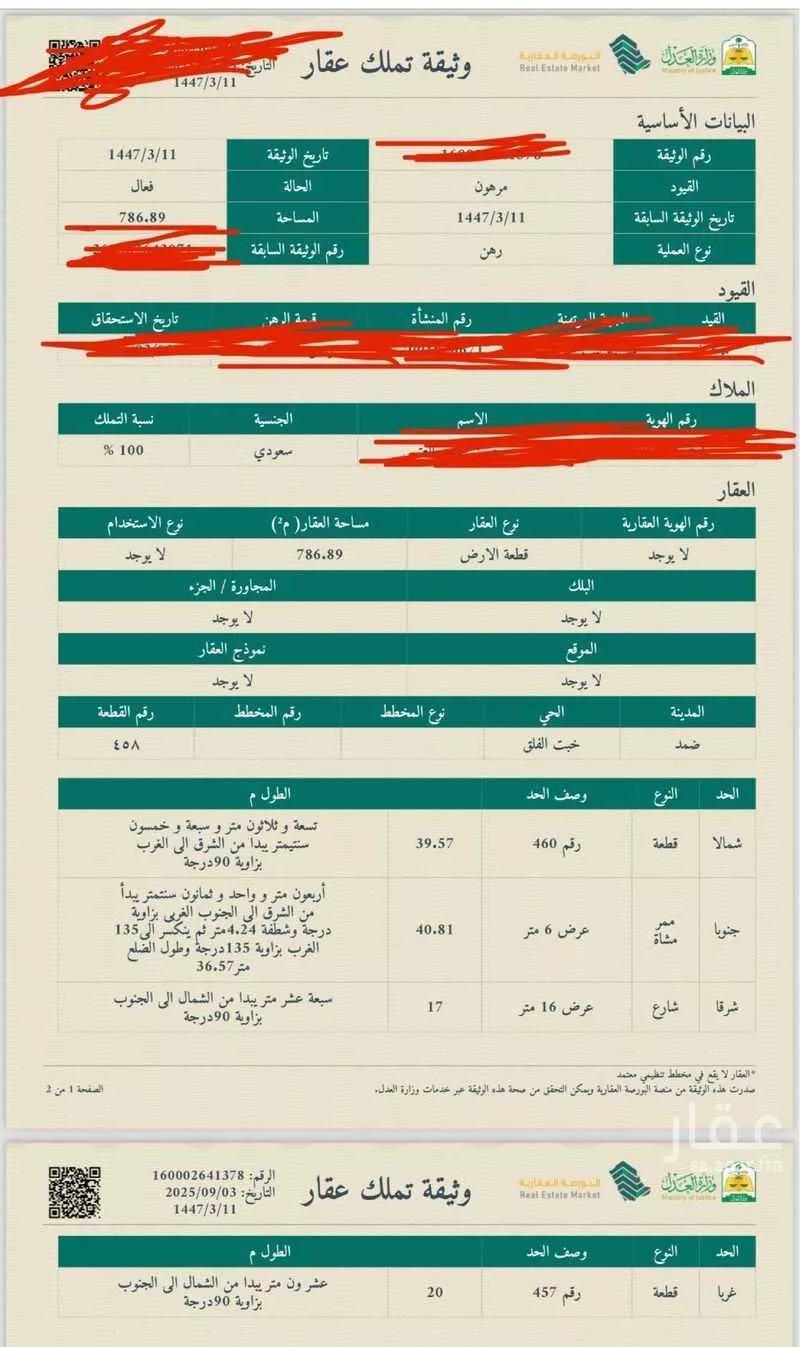 وثيقة تملك عقار
وزارة العدل
Ministry of Justice
البورصة العقارية
Real Estate Market
التاريخ:
1447/3/11
البيانات الأساسية
رقم الوثيقة تاريخ الوثيقة 1447/3/11
القيود مرهون الحالة فعال
تاريخ الوثيقة السابقة 1447/3/11 المساحة 786.89
نوع العملية رهن رقم الوثيقة السابقة
القيود
القيد رقم المنشأة قيمة الرهن تاريخ الاستحقاق
الملاك
رقم الهوية الاسم الجنسية نسبة التملك
سعودي 100 %
العقار
رقم الهوية العقارية نوع العقار مساحة العقار( م²) نوع الاستخدام
لا يوجد قطعة الارض 786.89 لا يوجد
البلك المجاورة / الجزء
لا يوجد لا يوجد
الموقع نموذج العقار
لا يوجد لا يوجد
المدينة الحي نوع المخطط رقم المخطط رقم القطعة
ضمد خبت الفلق ٤٥٨
الحد النوع وصف الحد الطول م
شمالا قطعة رقم 460 39.57 تسعة و ثلاثون متر و سبعة و خمسون
سنتيمتر يبدا من الشرق الى الغرب
بزاوية 90درجة
جنوبا ممر مشاة عرض 6 متر 40.81 أربعون متر و واحد و ثمانون سنتمتر يبدأ
من الشرق الى الجنوب الغربى بزاوية
درجة وشطفة 4.24متر ثم ينكسر الى135
الغرب بزاوية 135درجة وطول الضلع
متر36.57
شرقا شارع عرض 16 متر 17 سبعة عشر متر يبدا من الشمال الى الجنوب
بزاوية 90درجة
*العقار لا يقع في مخطط تنظيمي معتمد
صدرت هذه الوثيقة من منصة البورصة العقارية ويمكن التحقق من صحة هذه الوثيقة عبر خدمات وزارة العدل.
الصفحة 1 من 2
عقار
sa.aqar.fm
وزارة العدل
Ministry of Justice
البورصة العقارية
Real Estate Market
وثيقة تملك عقار
الرقم: 160002641378
التاريخ: 2025/09/03
1447/3/11
الحد النوع وصف الحد الطول م
غربا قطعة رقم 457 20 عشر ون متر يبدا من الشمال الى الجنوب
بزاوية 90درجة